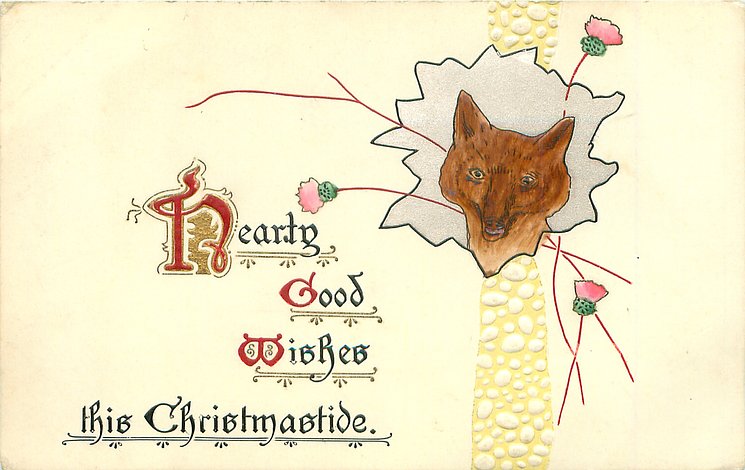 Hearty
Good
Wishes
this Christmastide.